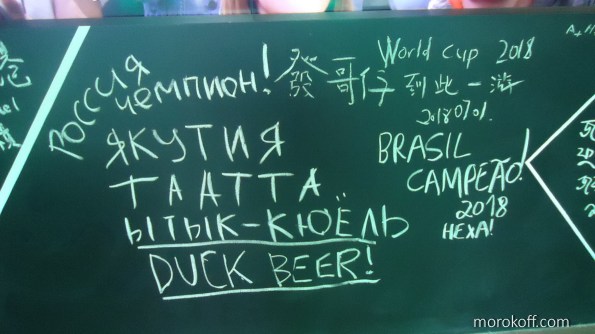 РОССИЯ
ЧЕМПИОН!
ЯКУТИЯ
ТААТТА
ЫТЫК-КЮЁЛЬ
DUCK BEER!
發哥仔到此一游
World Cup 2018
20180701.
BRASIL
CAMPEÃO!
2018
HEXA!
morokoff.com